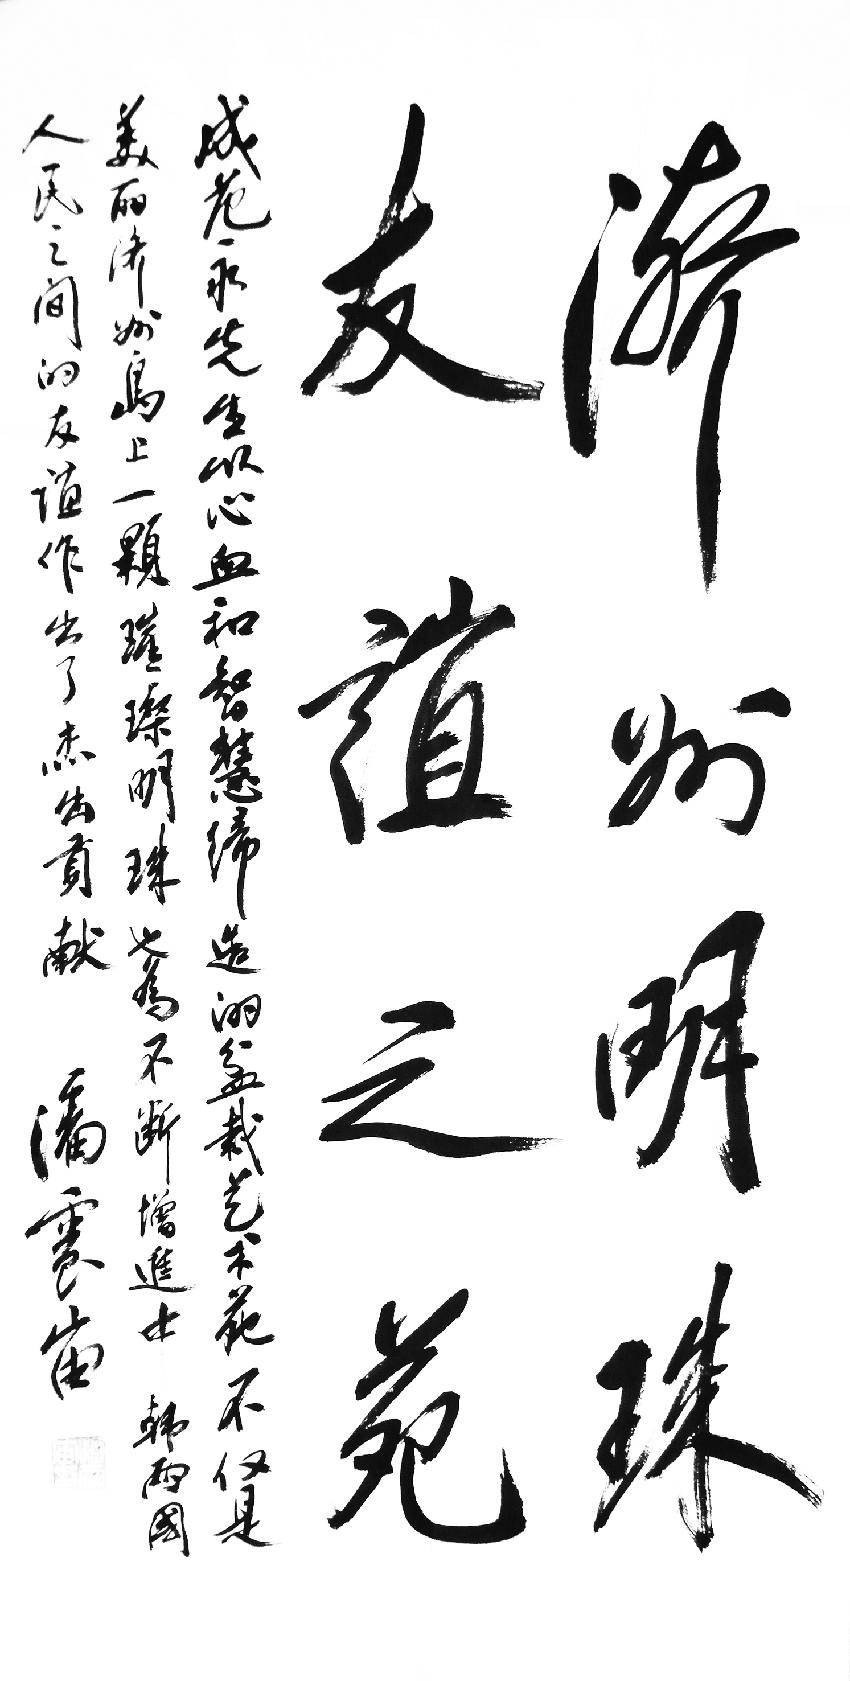 濟州明珠
友谊之苑
成范永先生以心血和智慧缔造的盆栽艺术苑不仅是
美丽济州島上一顆璀璨明珠也為不断增進中韩两國
人民之间的友谊作出了杰出贡献 潘震宙